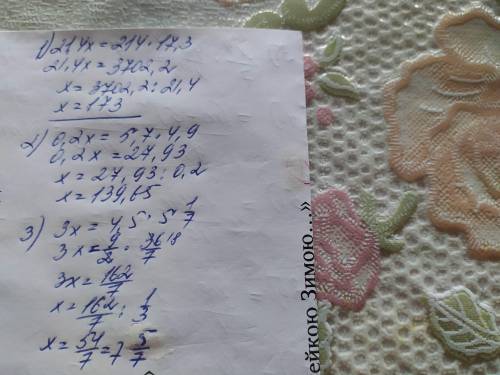 1) 21,4x = 214 · 17,3
21,4x = 3702,2
x = 3702,2 : 21,4
x = 173
2) 0,2x = 5,7 · 4,9
0,2x = 27,93
x = 27,93 : 0,2
x = 139,65
3) 3x = 4,5 · 5 1/7
3x = 9/2 · 36 18/7
3x = 162/7
x = 162/7 : 1/3
x = 54/7 = 7 5/7
ейкою Зимою...»